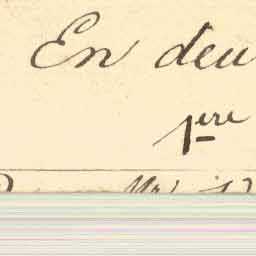 En deu
1ere